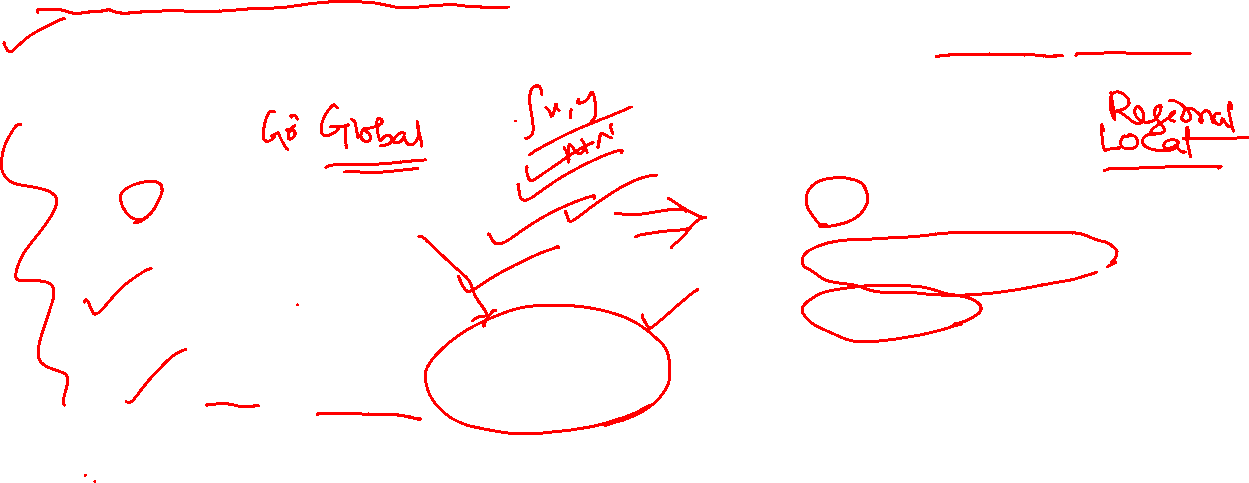 Go Global
∫x,y
A+N
Regional
Local